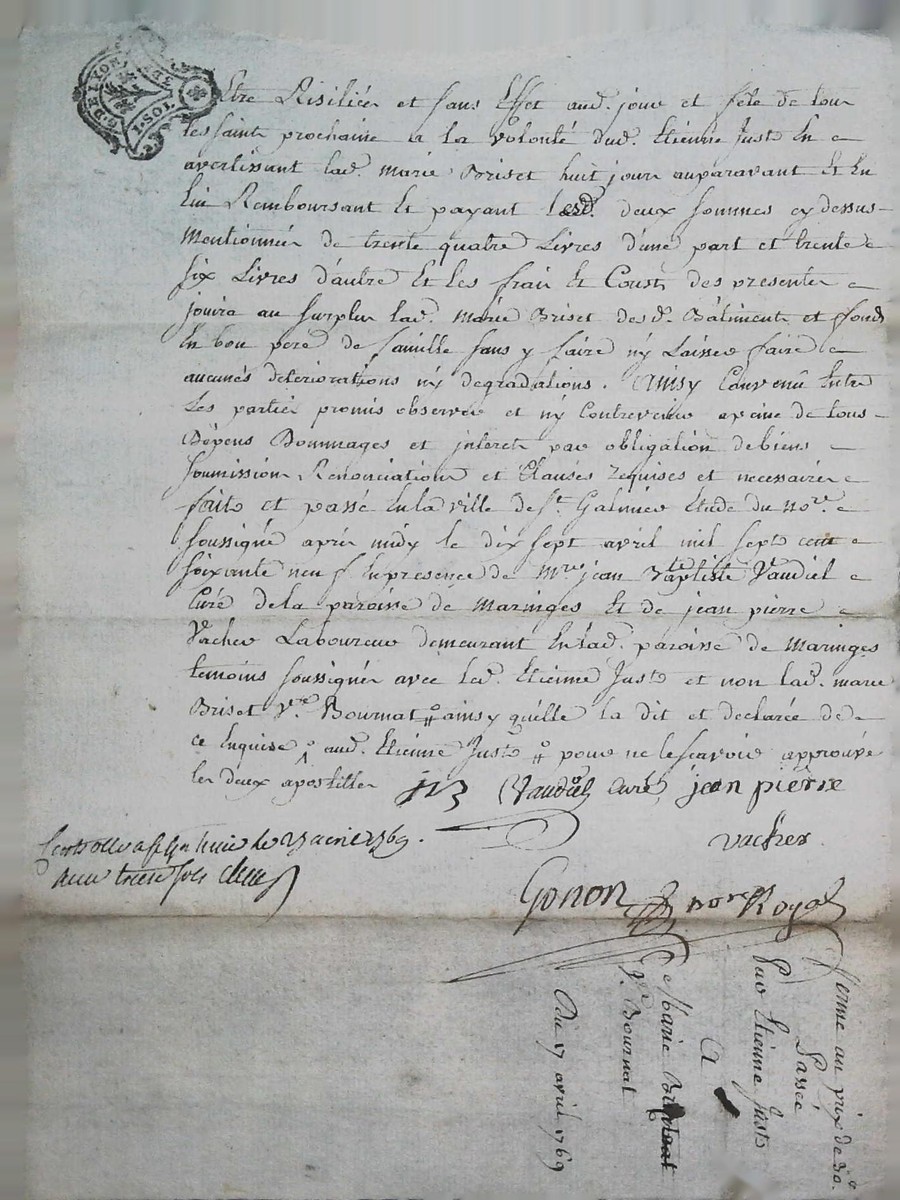 G. DE LYON
1. SOL
Etre Risiliée et sans Effet aud. jour et fete de tous
les saint prochaine a la volonté dud. Etienne Just En
avertissant lad. marie Briset huit jour auparavant Et En
lui Remboursant Et payant lesd. deux sommes cy dessus
Mentionnée de trente quatre Livres d'une part et trente
six Livres d'autre Et les frais Et Coust des presente
jouira au surplus lad. marie Briset desd. Bâtiment et fonds
En bon pere de famille sans y faire n'y Laisser faire
aucunés détériorations n'y degradations. Ainsy Convenû Entre
Les partie promis observer et n'y Contrevenir a peine de tous
Dépens Dommages et interets par obligation de biens
soumission Rénonciation et Clauses requises et necessaire
fait et passé En la ville de St. Galmier Etude du nore.
soussigné après midy le dix sept avril mil sept cent
soixante neuf En presence de Mre jean Baptiste Vaudiel
Curé de la paroisse de Maringes Et de jean pierre
Vacher Laboureur demeurant En lad. paroisse de Maringes
temoins soussigné avec led. Etienne Just et non lad. marie
Briset Ve. Bournat ainsy qu'elle la dit et declarée de
ce Enquise aud. Etienne Just pour ne le scavoir approuvé
les deux apostilles Vaudiel curé jean pierre
vacher
le 27 avril 1769.
treize sols
Gonon nore Royal
ferme au prix de 30.
Passé
Par Etienne Just
A
Marie
Ve. Bournat
Du 17 avril 1769